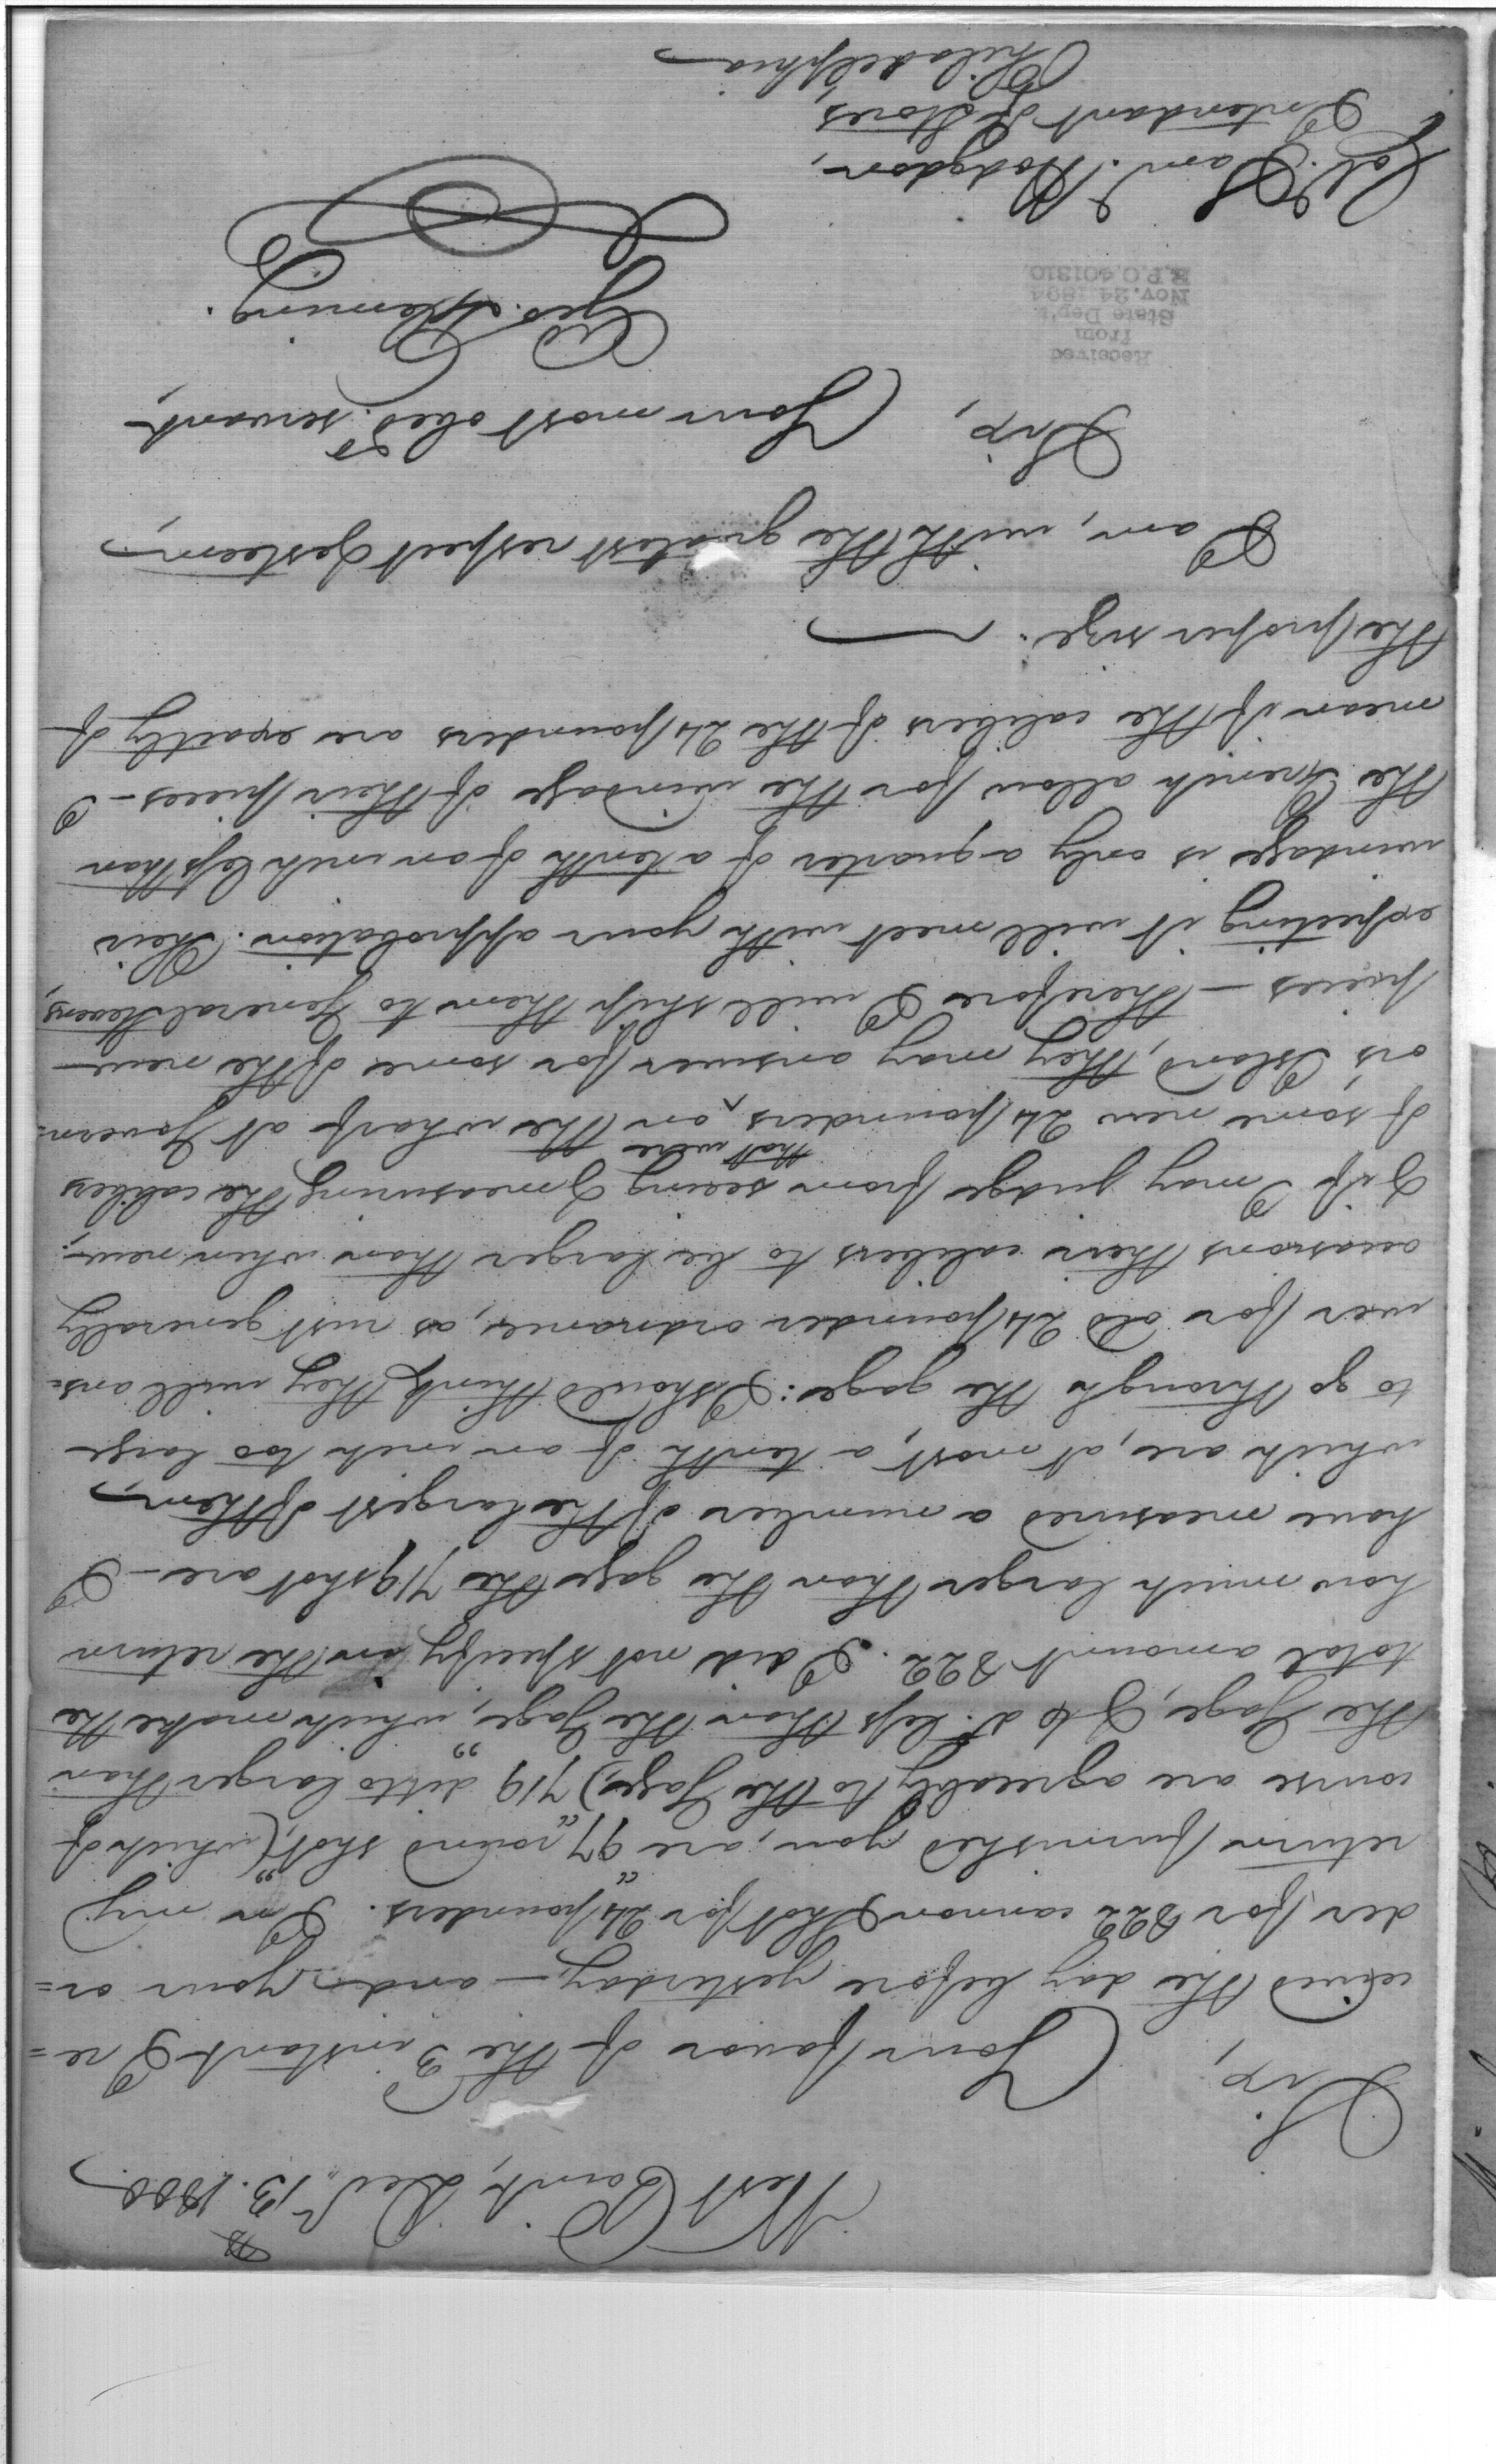 West Point, Decr. 13. 1800.
Sir,
Your favor of the 3 instant I re=
ceived the day before yesterday,— and your or=
der for 822 cannon shot for 24 pounders. In my
return furnished you, are "97" round shot, (which of
course are agreeably to the Gage,) "719" ditto larger than
the Gage, & 6 do. less than the Gage, which make the
total amount 822. I did not specify in the return
how much larger than the gage the 719 shot are — I
have measured a number of the largest of them,
which are, at most, a tenth of an inch too large
to go through the gage: I should think they will ans=
wer for old 24 pounder ordnance, as rust generally
occasions their calibers to be larger than when new;
& if I may judge from seeing & measuring the calibers
of some new 24 pounders, that were on the wharf at Govern=
or's Island, they may answer for some of the new
pieces — therefore I will ship them to General Stevens,
expecting it will meet with your approbation. Their
windage is only a quarter of a tenth of an inch less than
the French allow for the windage of their pieces — I
mean if the calibers of the 24 pounders are exactly of
the proper size.
I am, with the greatest respect & esteem,
Sir,
Your most obed. servant,
Geo. Fleming.
Received
from
State Dep't.
Nov. 24 1894
R.P.O. 401310
Col. Saml. Hodgdon,
Intendant of Stores,
Philadelphia